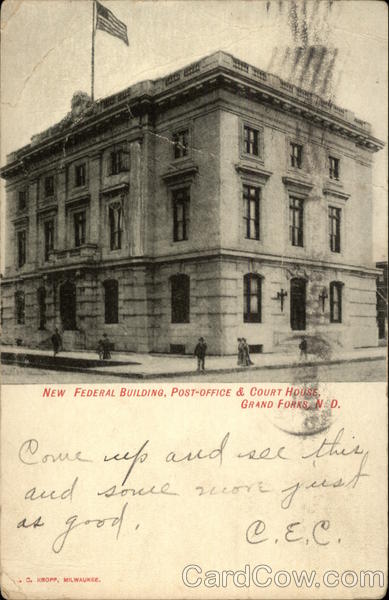 New Federal Building, Post-office & Court House,
Grand Forks, N. D.
Come up and see this
and some more just
as good.
C.E.C.
C. KROPP, MILWAUKEE.
CardCow.com